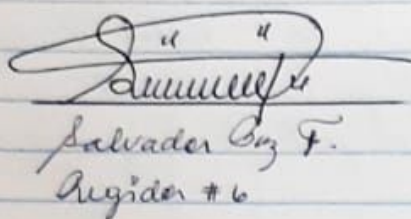 Salvador Cruz F.
Regidor # 6